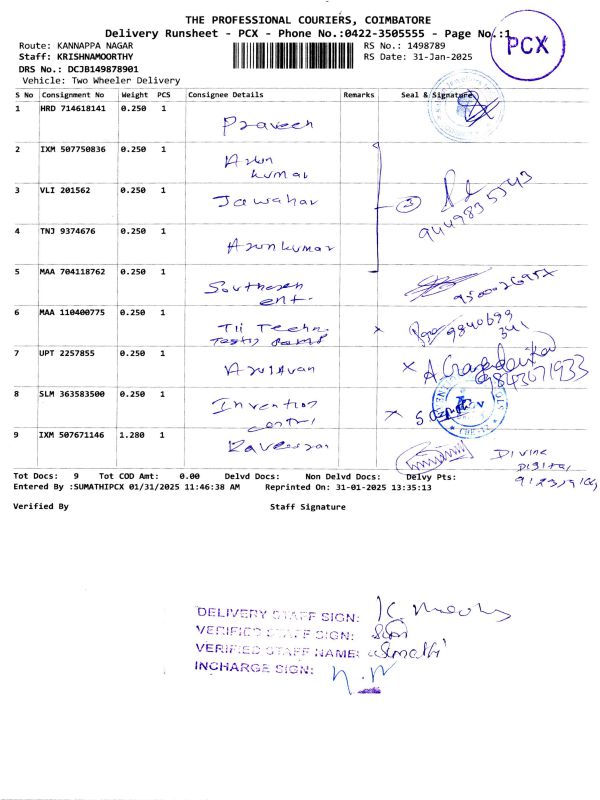 THE PROFESSIONAL COURIERS, COIMBATORE
Delivery Runsheet - PCX - Phone No.:0422-3505555 - Page No.:1
PCX
Route: KANNAPPA NAGAR
RS No.: 1498789
Staff: KRISHNAMOORTHY
RS Date: 31-Jan-2025
DRS No.: DCJB149878901
Vehicle: Two Wheeler Delivery
S No Consignment No Weight PCS Consignee Details Remarks Seal & Signature
1 HRD 714618141 0.250 1 Praveen
2 IXM 507750836 0.250 1 Arun
kumar
3 VLI 201562 0.250 1 Jawahar 3
9449835543
4 TNJ 9374676 0.250 1 Arunkumar
5 MAA 704118762 0.250 1 Southern
ent.
6 MAA 110400775 0.250 1 Tii Techn x 9840699
341
7 UPT 2257855 0.250 1 x
9843071933
8 SLM 363583500 0.250 1 Invention x
9 IXM 507671146 1.280 1 Divine
Digital
Tot Docs: 9 Tot COD Amt: 0.00 Delvd Docs: Non Delvd Docs: Delvy Pts:
Entered By :SUMATHIPCX 01/31/2025 11:46:38 AM Reprinted On: 31-01-2025 13:35:13
Verified By Staff Signature
DELIVERY STAFF SIGN:
VERIFIED STAFF SIGN:
VERIFIED STAFF NAME:
INCHARGE SIGN: